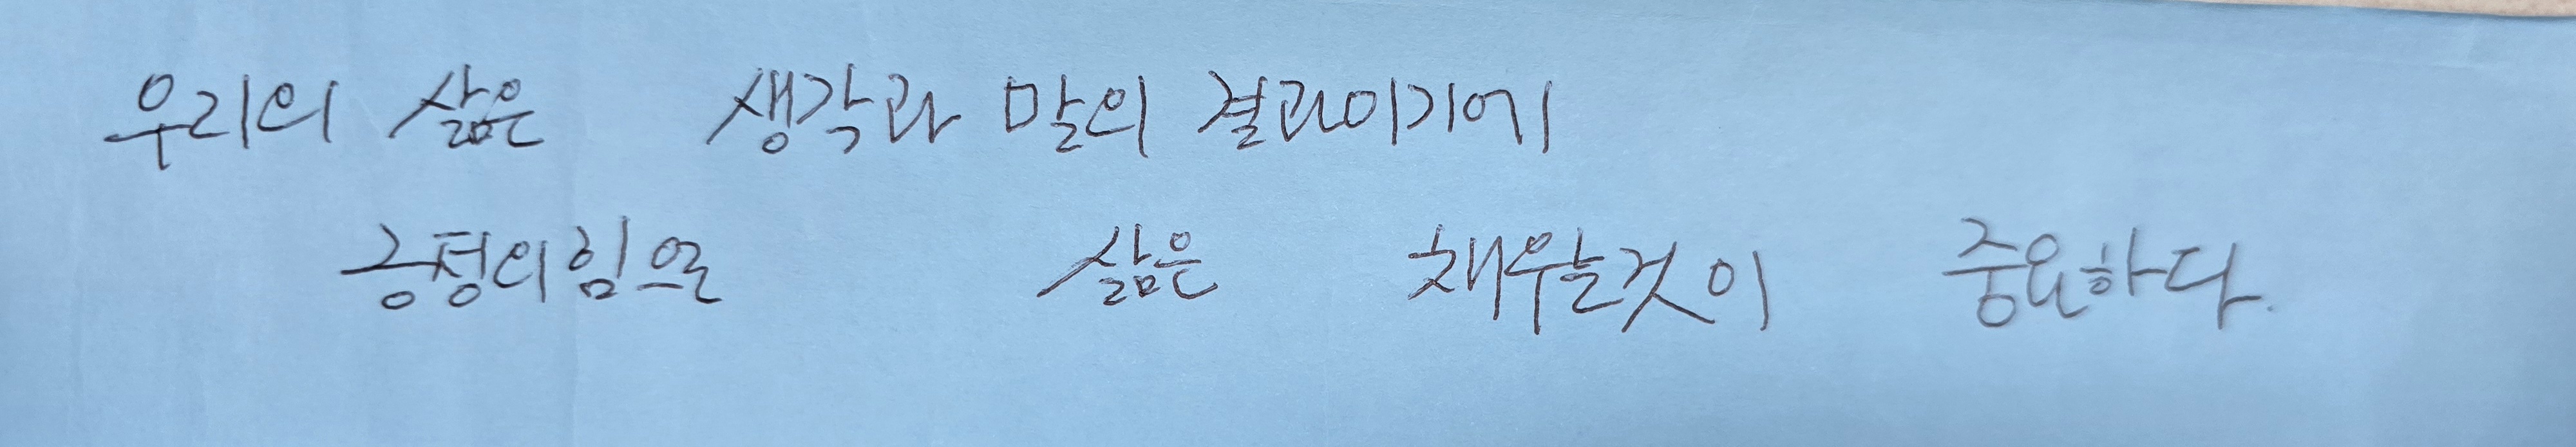 우리의 삶은 생각과 말의 결과이기에
긍정의 힘으로 삶은 채우는것이 중요하다.